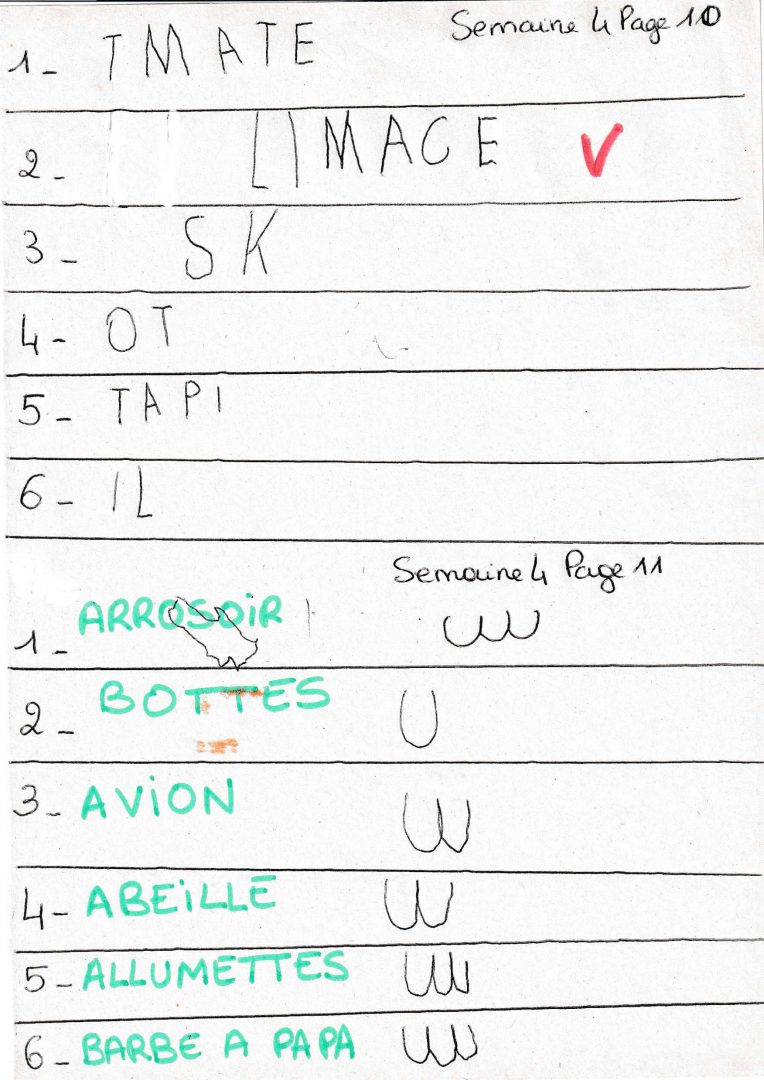 Semaine 4 Page 10
1- TMATE
2- LIMACE
3- SK
4- OT
5- TAPI
6- IL
Semaine 4 Page 11
1- ARROSOiR
2- BOTTES
3- AViON
4- ABEiLLE
5- ALLUMETTES
6- BARBE A PAPA